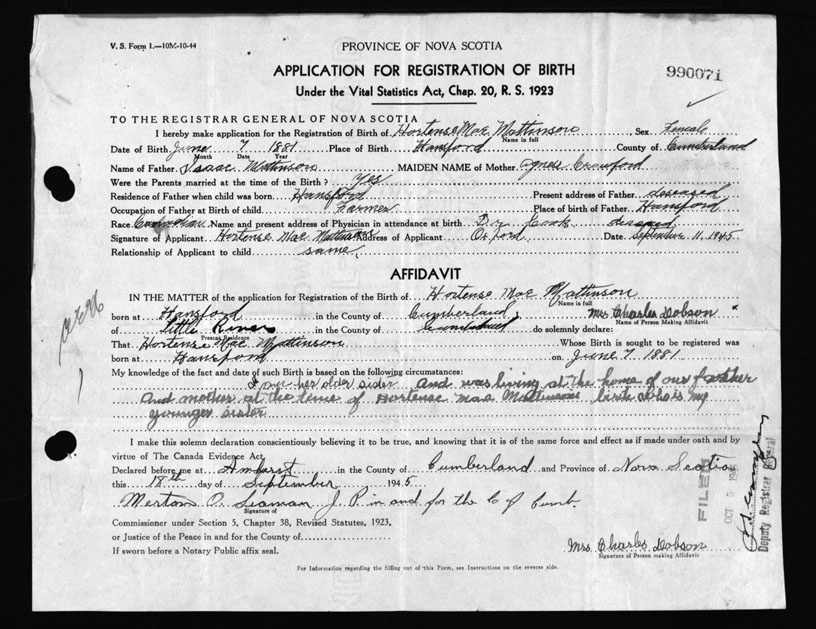 V. S. Form 1.—10M-10-44
PROVINCE OF NOVA SCOTIA
990071
APPLICATION FOR REGISTRATION OF BIRTH
Under the Vital Statistics Act, Chap. 20, R. S. 1923
TO THE REGISTRAR GENERAL OF NOVA SCOTIA
I hereby make application for the Registration of Birth of Hortense Mae Mattinson Sex Female
Name in full
Date of Birth June 7 1881 Place of Birth Hansford County of Cumberland
Month Date Year
Name of Father Isaac Mattinson MAIDEN NAME of Mother Agnes Crawford
Were the Parents married at the time of the Birth? Yes
Residence of Father when child was born Hansford Present address of Father deseased
Occupation of Father at Birth of child Farmer Place of birth of Father Hansford
Race Canadian Name and present address of Physician in attendance at birth Dr Cook deseased
Signature of Applicant Hortense Mae Mattinson Address of Applicant Oxford Date September 11, 1945
Relationship of Applicant to child same
AFFIDAVIT
IN THE MATTER of the application for Registration of the Birth of Hortense Mae Mattinson
Name in full
born at Hansford in the County of Cumberland, Mrs Charles Dobson
Name of Person Making Affidavit
of Little River in the County of Cumberland do solemnly declare:
Present Residence
That Hortense Mae Mattinson Whose Birth is sought to be registered was
born at Hansford on June 7 1881
My knowledge of the fact and date of such Birth is based on the following circumstances:
I am her older sister And was living at the home of our father
And mother at the time of Hortense Mae Mattinsons birth who is my
younger sister
I make this solemn declaration conscientiously believing it to be true, and knowing that it is of the same force and effect as if made under oath and by
virtue of The Canada Evidence Act.
Declared before me at Amherst in the County of Cumberland and Province of Nova Scotia
this 18th day of September 1945
Mertom O. Seaman J. P. in and for the Co of Cumb.
Signature of
Commissioner under Section 5, Chapter 38, Revised Statutes, 1923,
or Justice of the Peace in and for the County of
If sworn before a Notary Public affix seal.
Mrs Charles Dobson
Signature of Person making Affidavit
For Information regarding the filling out of this Form, see Instructions on the reverse side.
FILED
OCT 5
Deputy Registrar General